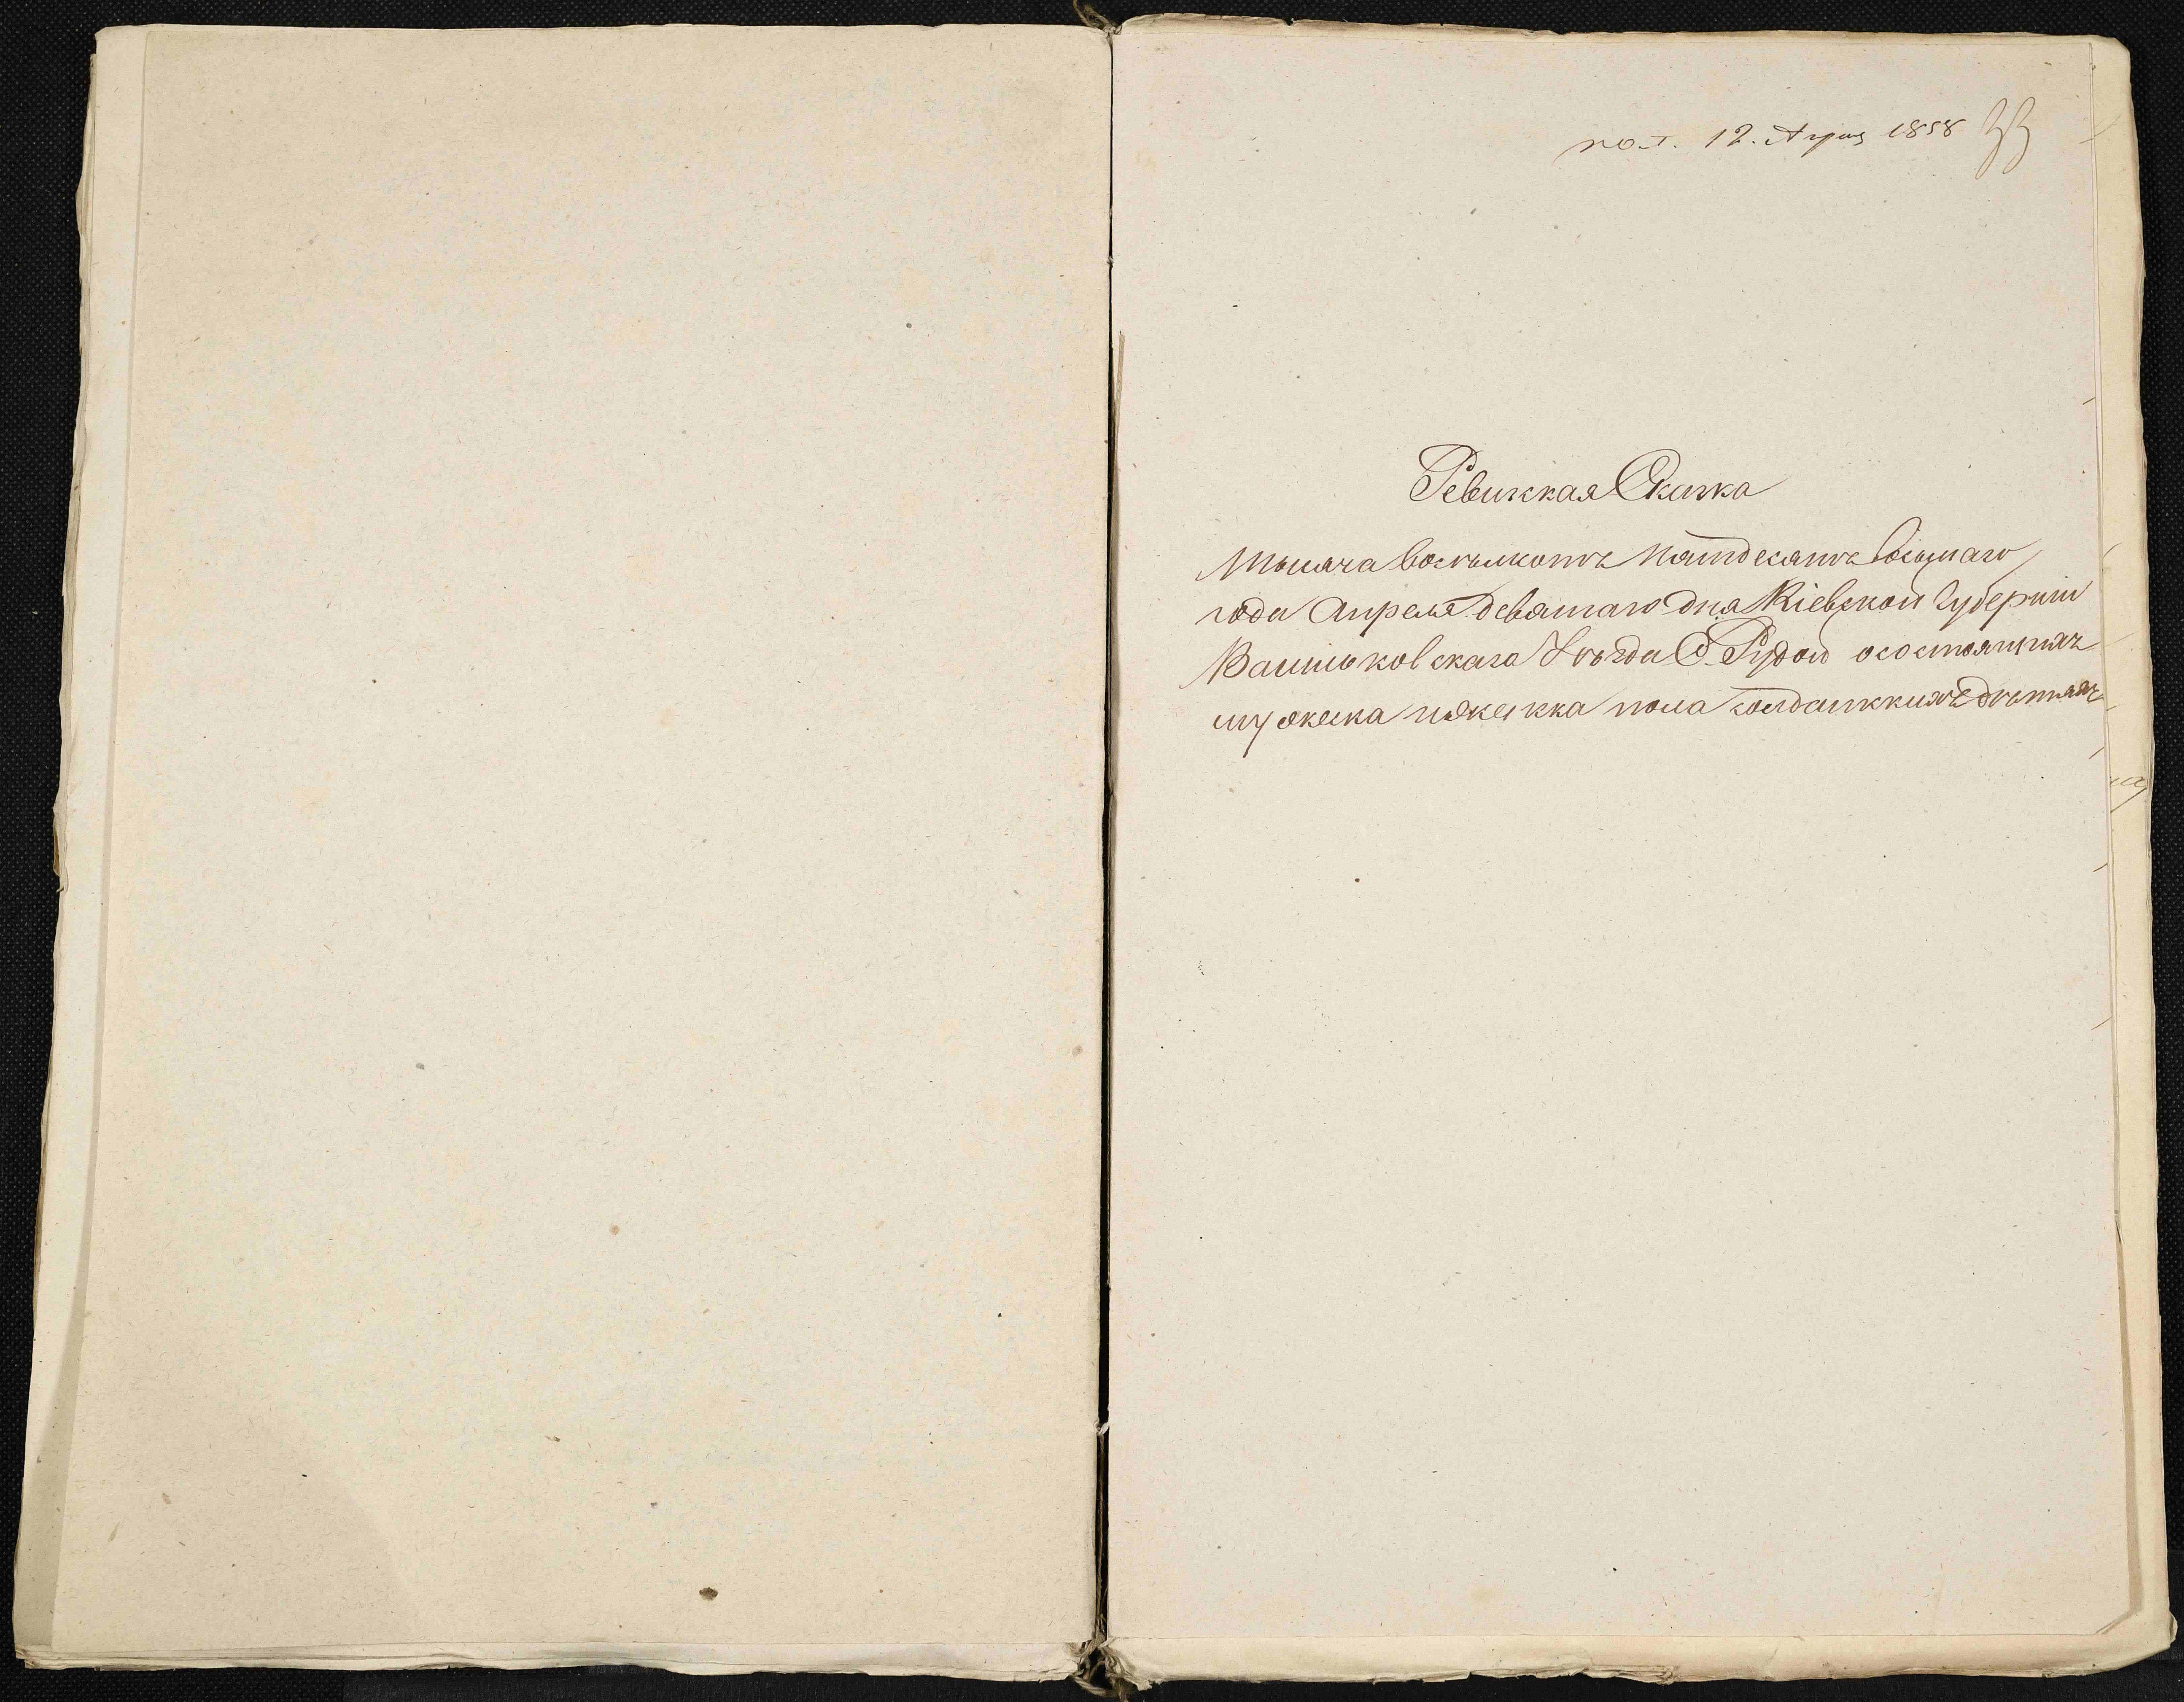 пол. 12. Апрѣ 1858 33
Ревизкая Сказка
Тысяча восѣмсотъ пятдесятъ восьмаго
года Апреля девятаго дня Кіевской Губерніи
Василъковскаго Уѣзда С. Рудой осостоящихъ
мужеска иженска пола солдатскихъ дѣтяхъ